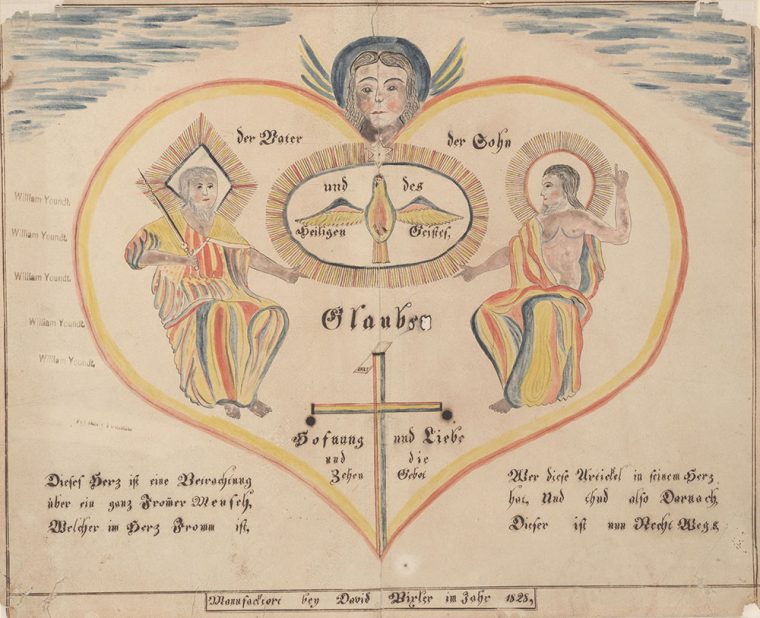 der Vater
der Sohn
und des
Heiligen Geistes,
Glaube
Hofnung und Liebe
und die
Zehen Gebot
Dieses Herz ist eine Betrachtung
über ein ganz Fromer Mensch,
Welcher im Herz Fromm ist,
Wer diese Artickel in seinem Herz
hat, Und thud also Darnach
Dieser ist nun Recht Wegs
Manufactort bey David Bixler im Jahr 1828,
William Youndt.
William Youndt.
William Youndt.
William Youndt.
William Youndt.